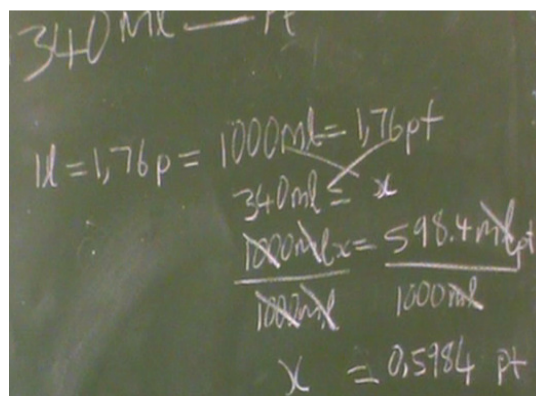 340 ml — Pt
1l = 1,76p = 1000ml = 1,76pt
340ml = x
1000mlx = 598.4 ml pt
1000ml 1000ml
x = 0,5984 pt